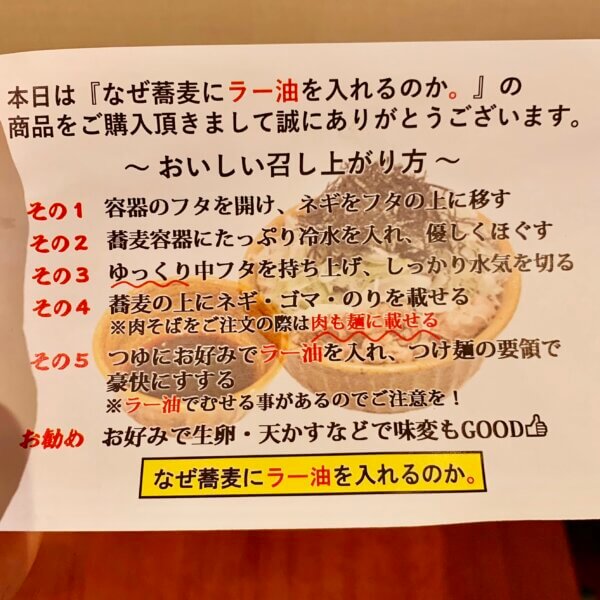 本日は『なぜ蕎麦にラー油を入れるのか。』の
商品をご購入頂きまして誠にありがとうございます。
～ おいしい召し上がり方 ～
その1 容器のフタを開け、ネギをフタの上に移す
その2 蕎麦容器にたっぷり冷水を入れ、優しくほぐす
その3 ゆっくり中フタを持ち上げ、しっかり水気を切る
その4 蕎麦の上にネギ・ゴマ・のりを載せる
※肉そばをご注文の際は肉も麺に載せる
その5 つゆにお好みでラー油を入れ、つけ麺の要領で
豪快にすする
※ラー油でむせる事があるのでご注意を！
お勧め お好みで生卵・天かすなどで味変もGOOD👍
なぜ蕎麦にラー油を入れるのか。